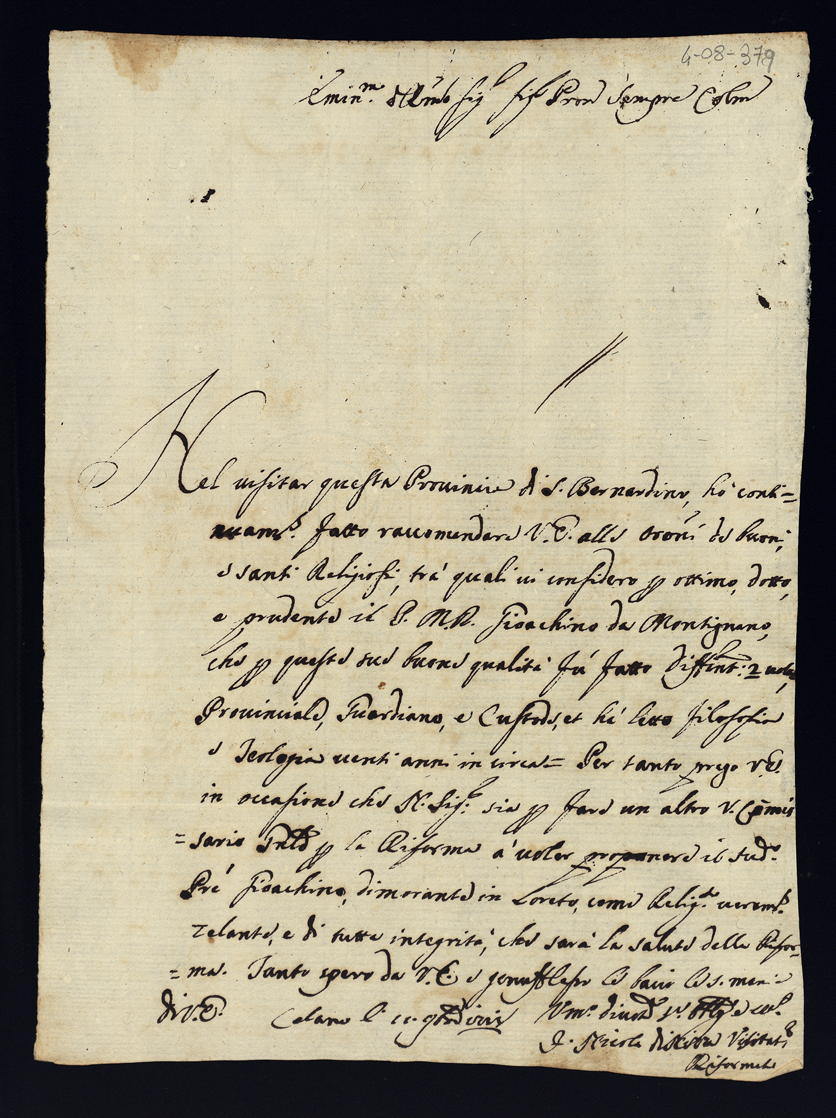 4-08-379
Emin.m et Rmo Sig.r Sig.r Pron Sempre Colm
Nel visitar questa Provincia di S. Bernardino, hò conti=
nuam.te fatto raccomendare V.E. alle oroni de buoni,
e santi Religiosi, trà quali vi considero p ottimo, dotto,
e prudente il P. M.R. Gioachino da Montignano,
che p queste sue buone qualità fù fatto Diffinit.r 2 volte,
Provinciale, Guardiano, e Custode, et hà letto filosofia
e Teologia venti anni in circa= Per tanto prego V.E.
in occasione che N. Sig.r sia p fare un altro V. Comis
=sario Gnle p la Riforma à voler proponere il sud.o
Pre Gioachino, dimorante in Loreto, come Relig.o veram.te
zelante, e di tutta integrità, che sarà la salute della Rifor=
=ma. Tanto spero da V.E. e genuflesso le bacio le s. mani
di V.E. Celano li Vm.o divot.o
F. Nicola di Visitat.r
Riformato